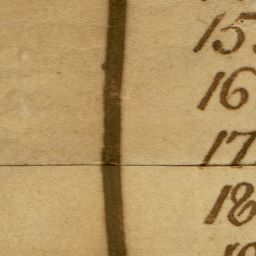 15.
16
17
18